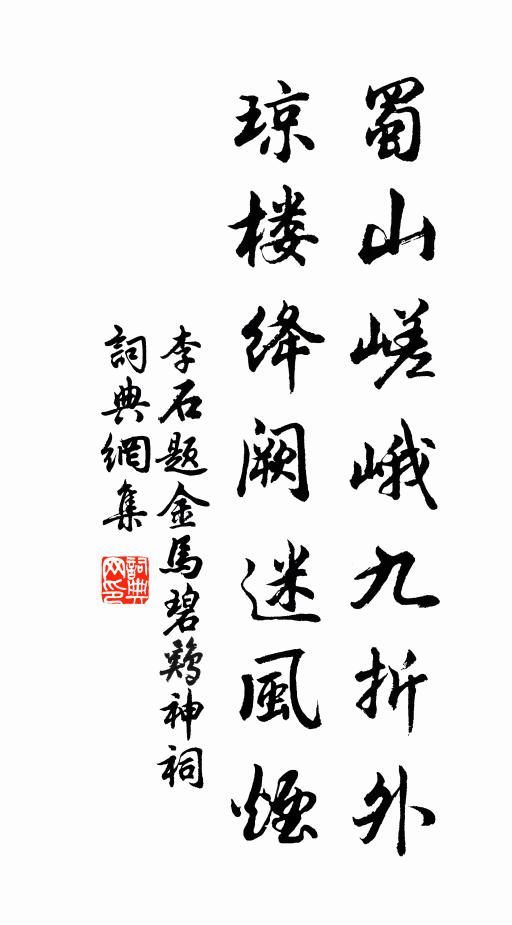 蜀山嵯峨九折外
琼楼绛阙迷風煙
李石题金馬碧鷄神祠
詞典網集
詞典网印